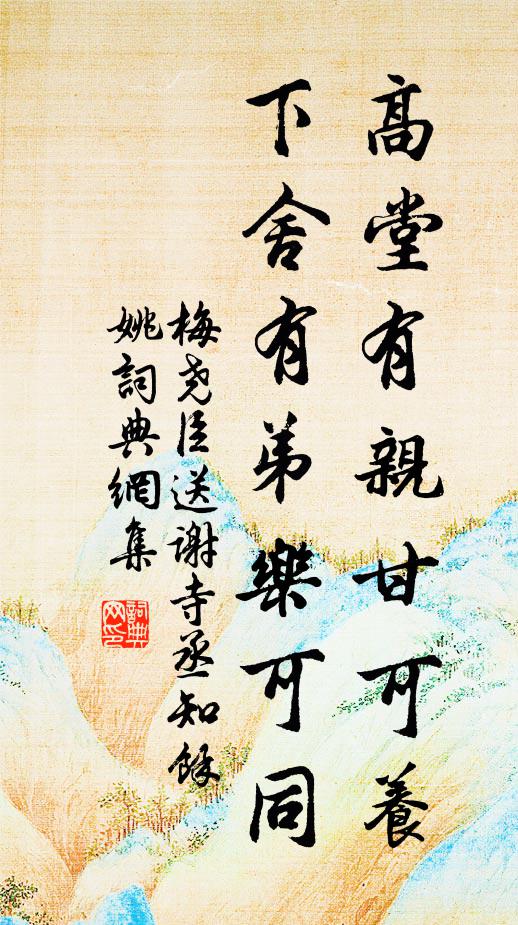 高堂有親甘可養
下舍有弟樂可同
梅尧臣送谢寺丞知餘
姚詞典網集
詞典
网印